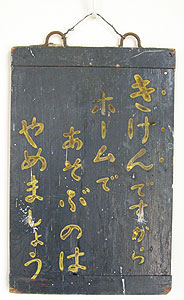 きけんですから
ホームで
あそぶのは
やめましょう